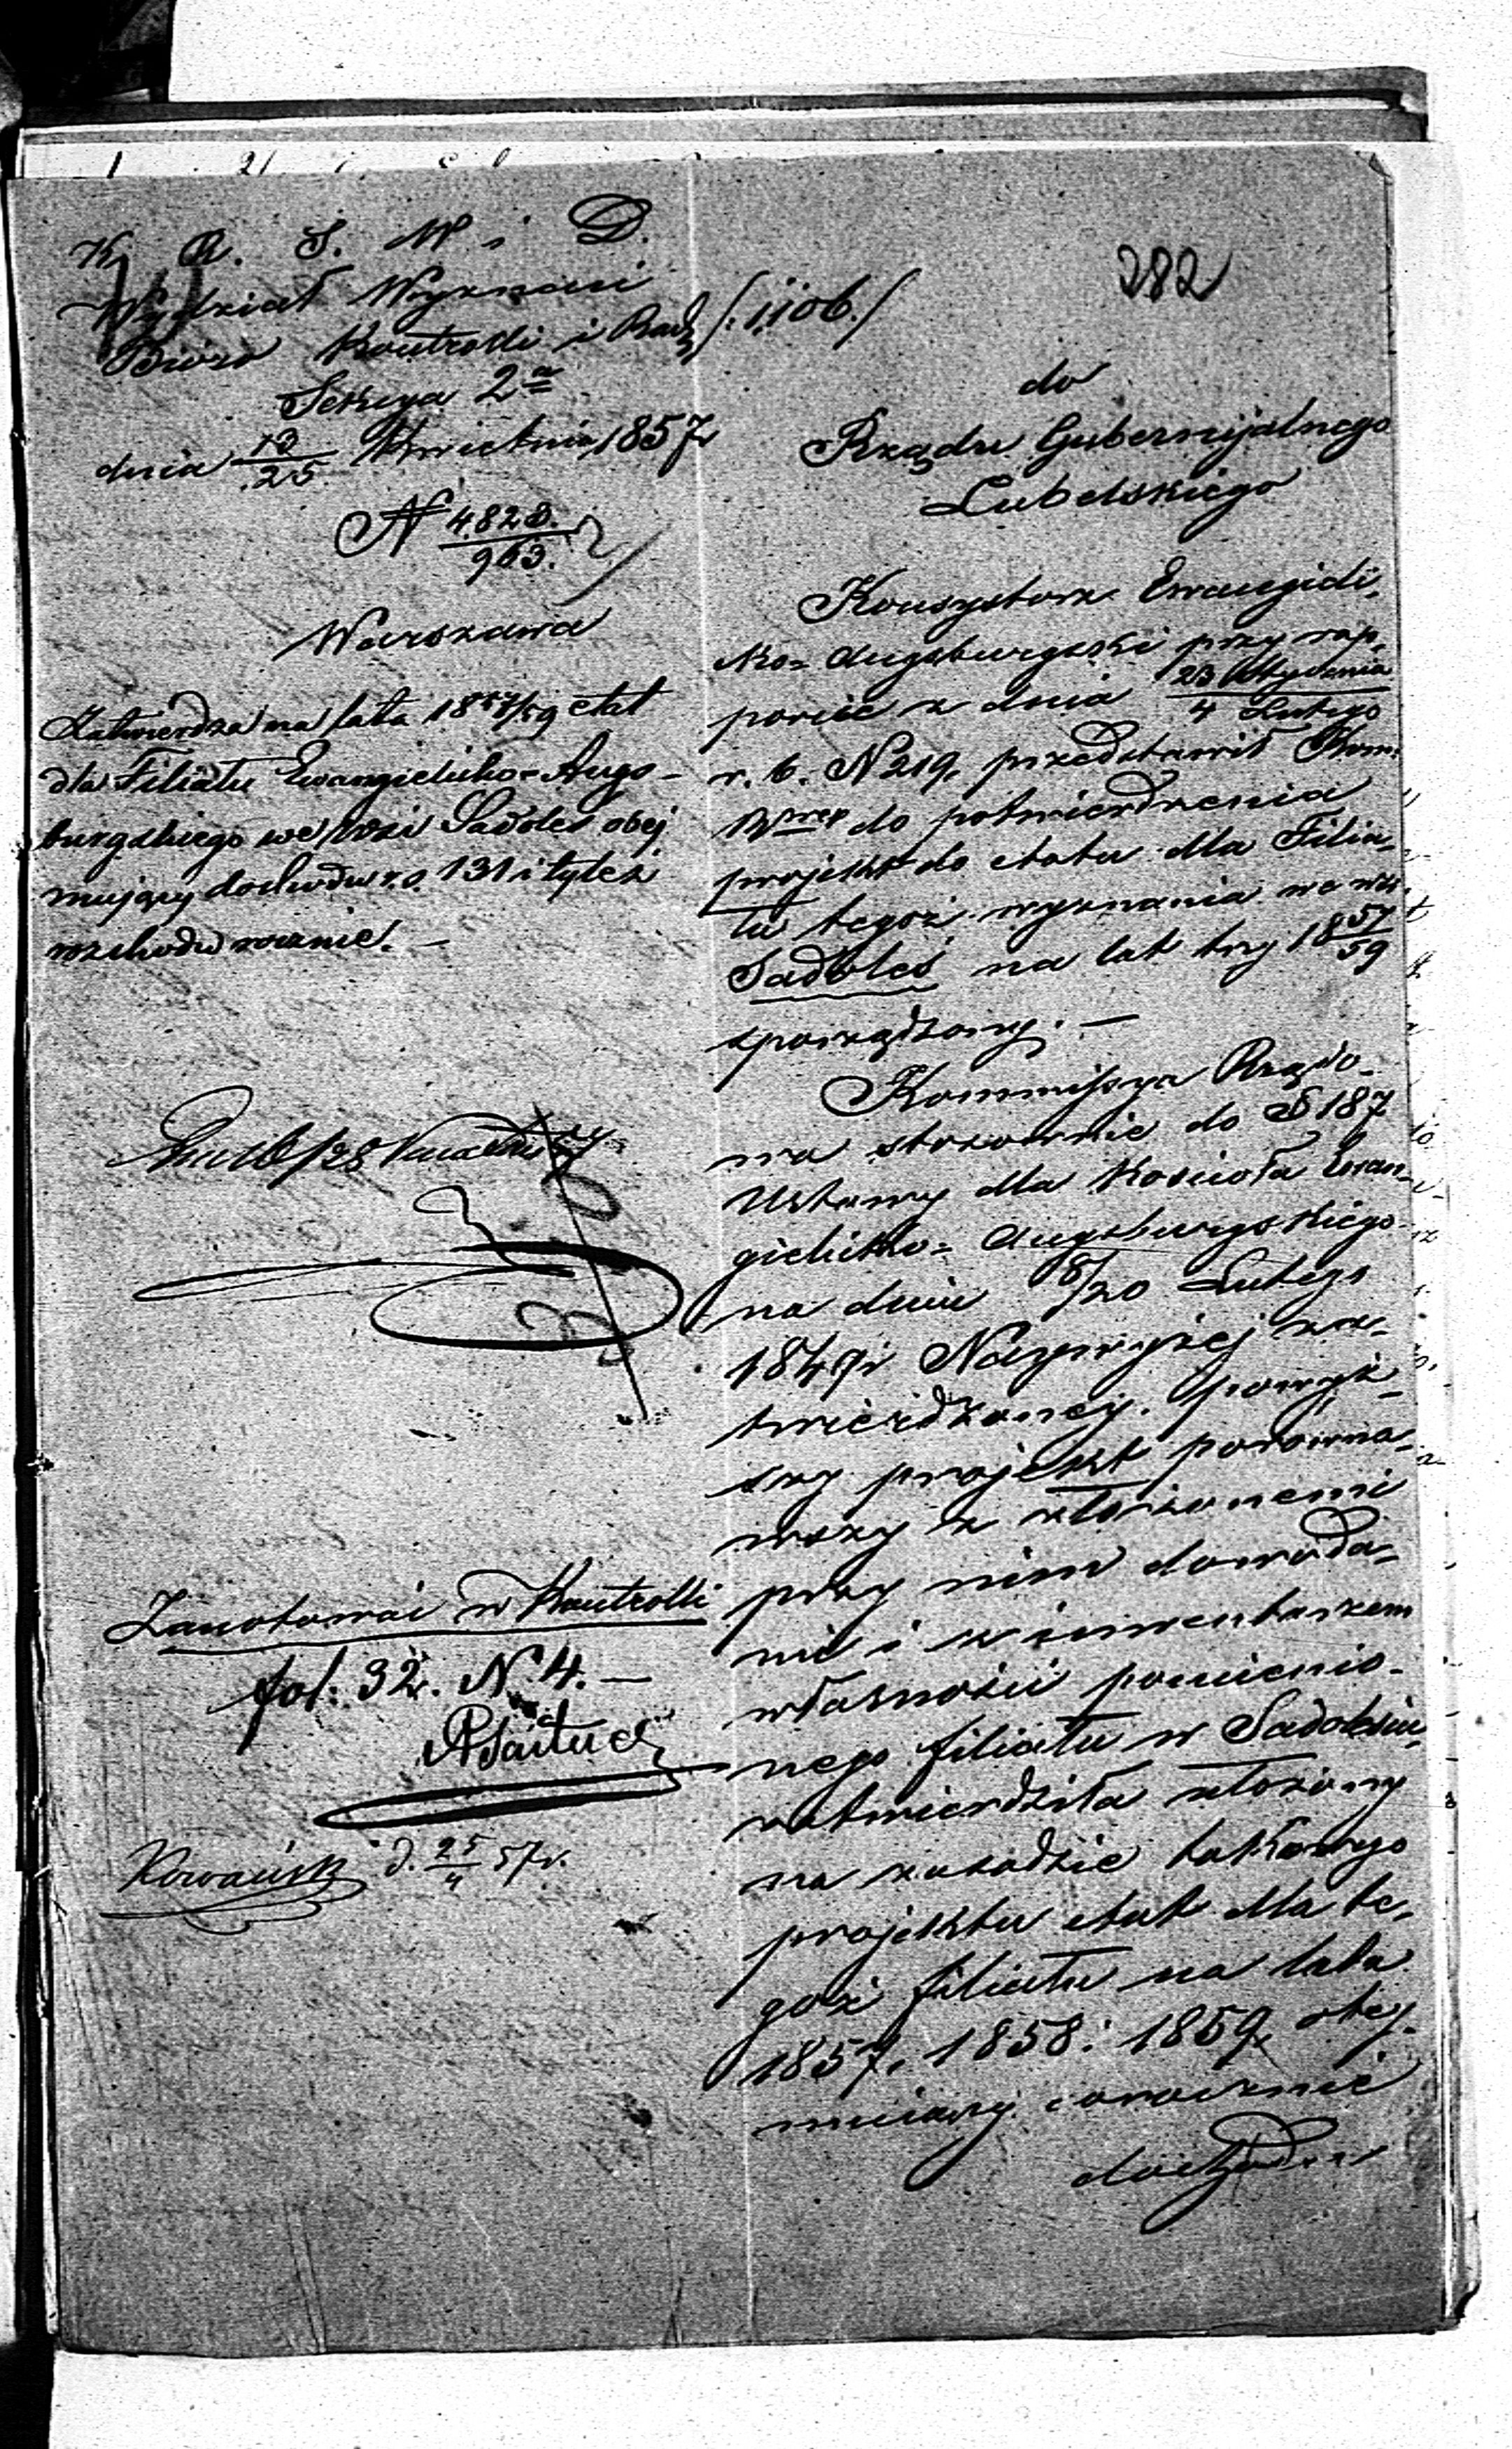 282
K. R. S. W. i D.
Wydział Wyznań
Bióro Kontrolli i Rach
Sekcya 2a
dnia 13/25 Kwietnia 1857
N 4828./963.
Warszawa
Zatwierdza na lata 1857/59 etat
dla Filiału Ewangielicko-Augs-
burgskiego we wsi Sadoleś obej
mujący dochodu rs. 131 i tyleż
rozchodu rocznie. —
Zanotować w Kontrolli
fol: 32. N. 4. —
d. 25/4 57r.
do
Rządu Gubernijalnego
Lubelskiego
Konsystorz Ewangieli-
cko-Augsburgski przy rap-
porcie z dnia 23 Stycznia/4 Lutego
r. b. N 219, przedstawił Kom.
do potwierdzenia
projekt do etatu dla Filia-
łu tegoż wyznania we wsi
Sadoleś na lat trzy 1857/59
sporządzony. —
Kommissya Rządo-
wa stosownie do § 187
Ustawy dla Kościoła Ewan-
gielicko-Augsburgskiego
na dniu 8/20 Lutego
1849r Najwyżej za-
twierdzonej. powyż-
szy projekt porówna-
wszy z złożonemi
przy nim dowoda-
mi i z inwentarzem
własności pomienio-
nego filiału w Sadolesiu,
zatwierdziła ułożony
na zasadzie takowego
projektu etat dla te-
goż filiału na lata
1857, 1858. 1859, obej
mujący corocznie
dochodu